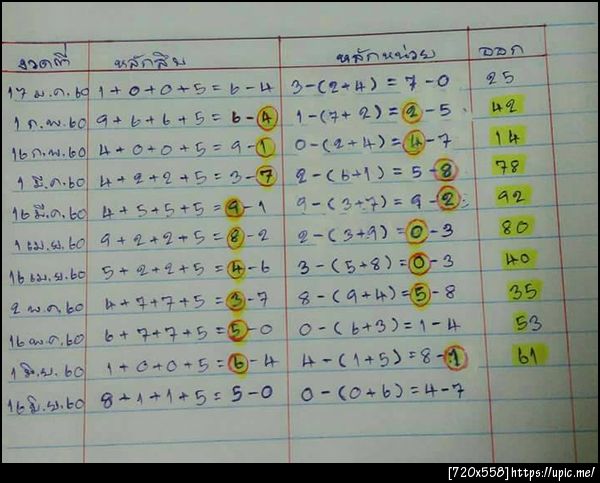 งวดที่ หลักสิบ หลักหน่วย ออก
17 ม.ค.60 1+0+0+5=6-4 3-(2+4)=7-0 25
1 ก.พ.60 9+6+6+5=6-4 1-(7+2)=2-5 42
16 ก.พ.60 4+0+0+5=9-1 0-(2+4)=4-7 14
1 มี.ค.60 4+2+2+5=3-7 2-(6+1)=5-8 78
16 มี.ค.60 4+5+5+5=9-1 9-(3+7)=9-2 92
1 เม.ย.60 9+2+2+5=8-2 2-(3+9)=0-3 80
16 เม.ย.60 5+2+2+5=4-6 3-(5+8)=0-3 40
2 พ.ค.60 4+7+7+5=3-7 8-(9+4)=5-8 35
16 พ.ค.60 6+7+7+5=5-0 0-(6+3)=1-4 53
1 มิ.ย.60 1+0+0+5=6-4 4-(1+5)=8-1 61
16 มิ.ย.60 8+1+1+5=5-0 0-(0+6)=4-7
[720x558]https://upic.me/